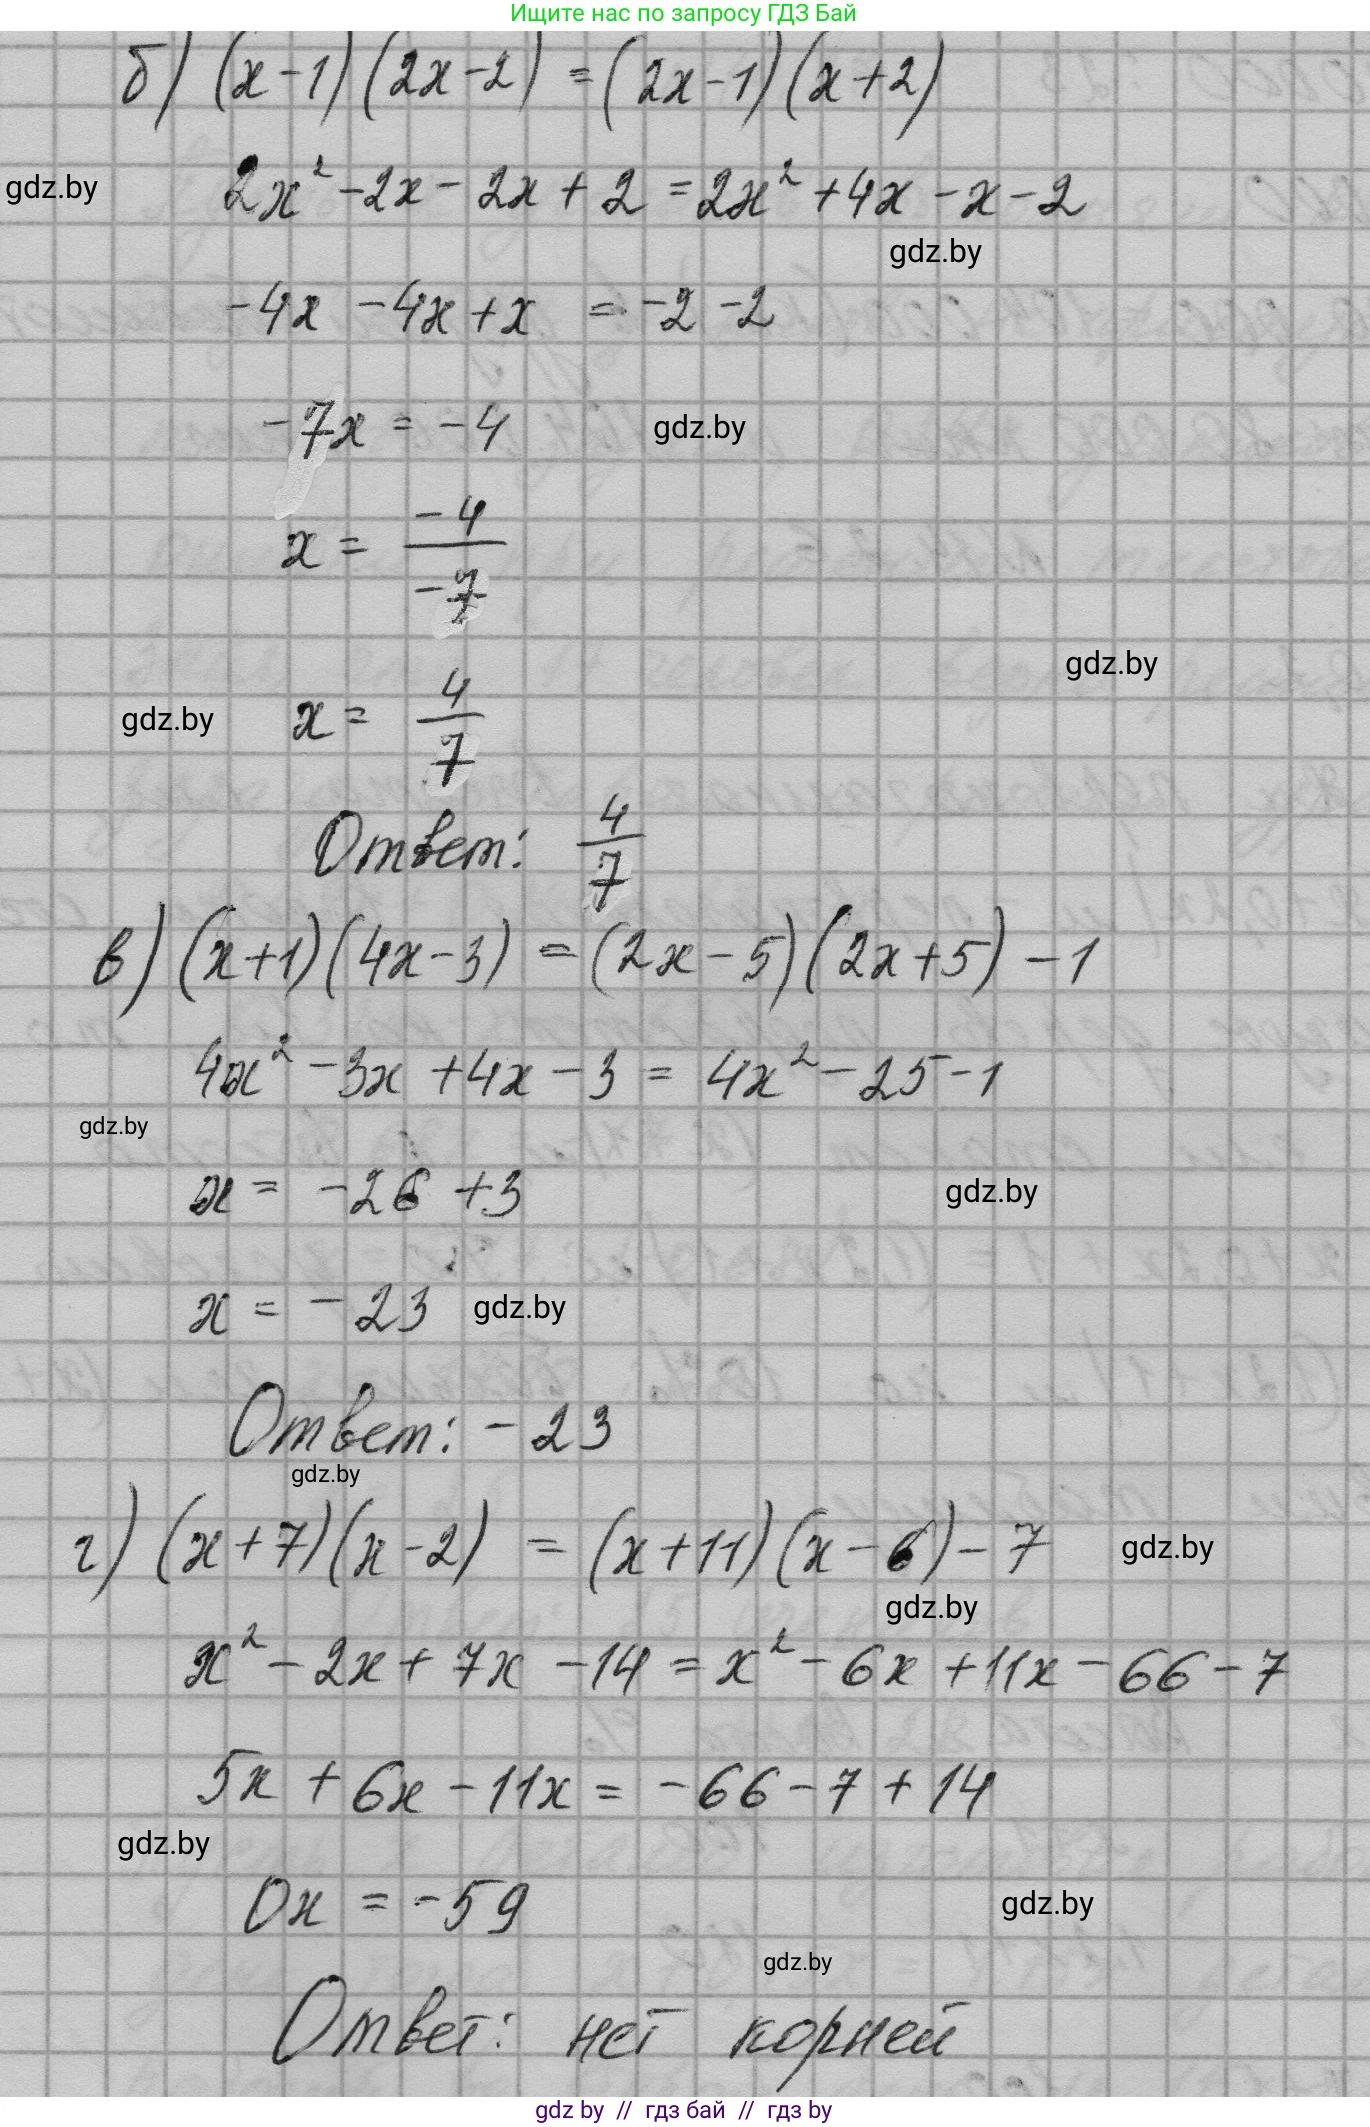 Ищите нас по запросу ГДЗ Бай
б) (x-1)(2x-2) = (2x-1)(x+2)
gdz.by
2x² -2x - 2x + 2 = 2x² +4x -x -2
gdz.by
-4x -4x +x = -2 -2
-7x = -4
gdz.by
x = -4/-7
gdz.by
gdz.by
x = 4/7
Ответ: 4/7
в) (x+1)(4x-3) = (2x-5)(2x+5) -1
4x² -3x +4x -3 = 4x² -25 -1
gdz.by
x = -26 +3
gdz.by
x = -23
gdz.by
Ответ: -23
gdz.by
г) (x+7)(x-2) = (x+11)(x-6) -7
gdz.by
gdz.by
x² -2x + 7x -14 = x² -6x +11x -66 -7
5x + 6x -11x = -66 -7 +14
gdz.by
0x = -59
gdz.by
gdz.by
Ответ: нет корней
gdz by // гдз бай // гдз by